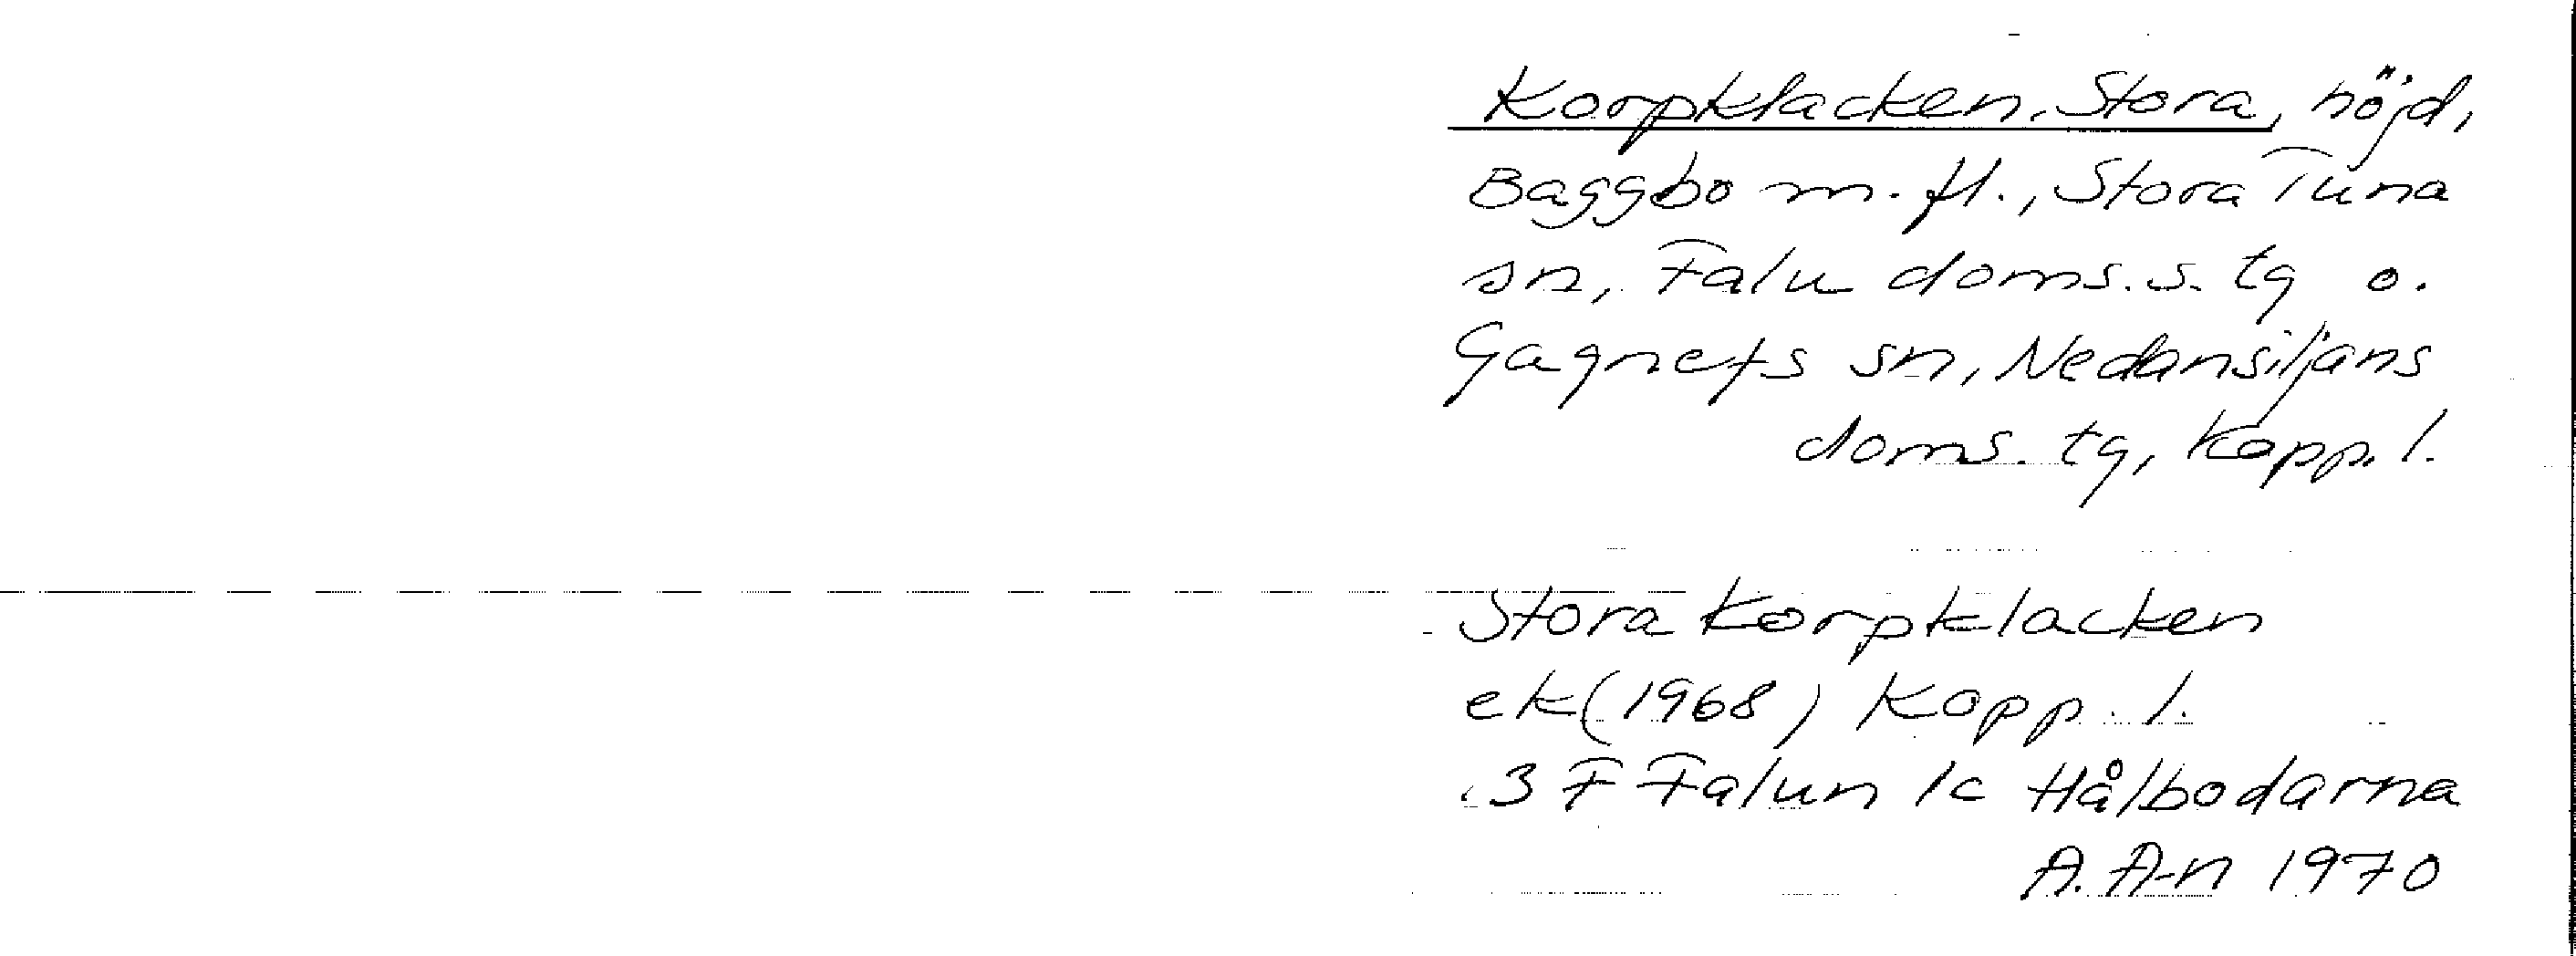 Korpklacken, Stora, höjd,
Baggbo m.fl., Stora Tuna
sn, Falu doms.s. tg o.
Gagnefs sn, Nedansiljans
doms. tg, Kopp. l.
Stora Korpklacken
ek (1968) Kopp. l.
3 F Falun 1c Hålbodarna
A. A-n 1970